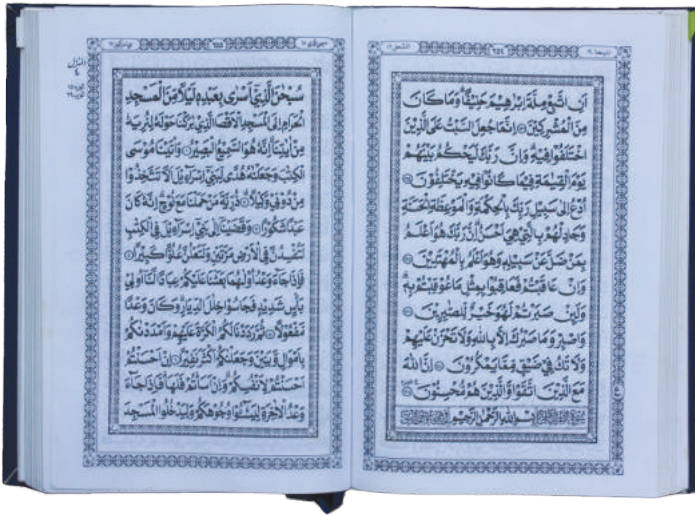 النحل ١٦
اَنِ اتَّبِعْ مِلَّةَ اِبْرٰهِيْمَ حَنِيْفًا ؕ وَمَا كَانَ
مِنَ الْمُشْرِكِيْنَ ۝ اِنَّمَا جُعِلَ السَّبْتُ عَلَى الَّذِيْنَ
اخْتَلَفُوْا فِيْهِ ؕ وَاِنَّ رَبَّكَ لَيَحْكُمُ بَيْنَهُمْ
يَوْمَ الْقِيٰمَةِ فِيْمَا كَانُوْا فِيْهِ يَخْتَلِفُوْنَ ۝
اُدْعُ اِلٰى سَبِيْلِ رَبِّكَ بِالْحِكْمَةِ وَالْمَوْعِظَةِ الْحَسَنَةِ
وَجَادِلْهُمْ بِالَّتِيْ هِيَ اَحْسَنُ ؕ اِنَّ رَبَّكَ هُوَ اَعْلَمُ
بِمَنْ ضَلَّ عَنْ سَبِيْلِهٖ وَهُوَ اَعْلَمُ بِالْمُهْتَدِيْنَ ۝
وَاِنْ عَاقَبْتُمْ فَعَاقِبُوْا بِمِثْلِ مَا عُوْقِبْتُمْ بِهٖ ؕ
وَلَئِنْ صَبَرْتُمْ لَهُوَ خَيْرٌ لِّلصّٰبِرِيْنَ ۝
وَاصْبِرْ وَمَا صَبْرُكَ اِلَّا بِاللّٰهِ وَلَا تَحْزَنْ عَلَيْهِمْ
وَلَا تَكُ فِيْ ضَيْقٍ مِّمَّا يَمْكُرُوْنَ ۝ اِنَّ اللّٰهَ
مَعَ الَّذِيْنَ اتَّقَوْا وَّالَّذِيْنَ هُمْ مُّحْسِنُوْنَ ۝
بِسْمِ اللّٰهِ الرَّحْمٰنِ الرَّحِيْمِ
ع
سبحن الذي ١٥
بني اسرائيل ١٧
المنزل ٤
سُبْحٰنَ الَّذِيْٓ اَسْرٰى بِعَبْدِهٖ لَيْلًا مِّنَ الْمَسْجِدِ
الْحَرَامِ اِلَى الْمَسْجِدِ الْاَقْصَا الَّذِيْ بٰرَكْنَا حَوْلَهٗ لِنُرِيَهٗ
مِنْ اٰيٰتِنَا ؕ اِنَّهٗ هُوَ السَّمِيْعُ الْبَصِيْرُ ۝ وَاٰتَيْنَا مُوْسَى
الْكِتٰبَ وَجَعَلْنٰهُ هُدًى لِّبَنِيْٓ اِسْرَآءِيْلَ اَلَّا تَتَّخِذُوْا
مِنْ دُوْنِيْ وَكِيْلًا ۝ ذُرِّيَّةَ مَنْ حَمَلْنَا مَعَ نُوْحٍ ؕ اِنَّهٗ كَانَ
عَبْدًا شَكُوْرًا ۝ وَقَضَيْنَآ اِلٰى بَنِيْٓ اِسْرَآءِيْلَ فِي الْكِتٰبِ
لَتُفْسِدُنَّ فِي الْاَرْضِ مَرَّتَيْنِ وَلَتَعْلُنَّ عُلُوًّا كَبِيْرًا ۝
فَاِذَا جَآءَ وَعْدُ اُوْلٰىهُمَا بَعَثْنَا عَلَيْكُمْ عِبَادًا لَّنَآ اُولِيْ
بَاْسٍ شَدِيْدٍ فَجَاسُوْا خِلٰلَ الدِّيَارِ ؕ وَكَانَ وَعْدًا
مَّفْعُوْلًا ۝ ثُمَّ رَدَدْنَا لَكُمُ الْكَرَّةَ عَلَيْهِمْ وَاَمْدَدْنٰكُمْ
بِاَمْوَالٍ وَّبَنِيْنَ وَجَعَلْنٰكُمْ اَكْثَرَ نَفِيْرًا ۝ اِنْ اَحْسَنْتُمْ
اَحْسَنْتُمْ لِاَنْفُسِكُمْ ۟ وَاِنْ اَسَاْتُمْ فَلَهَا ؕ فَاِذَا جَآءَ
وَعْدُ الْاٰخِرَةِ لِيَسُوْٓءٗا وُجُوْهَكُمْ وَلِيَدْخُلُوا الْمَسْجِدَ